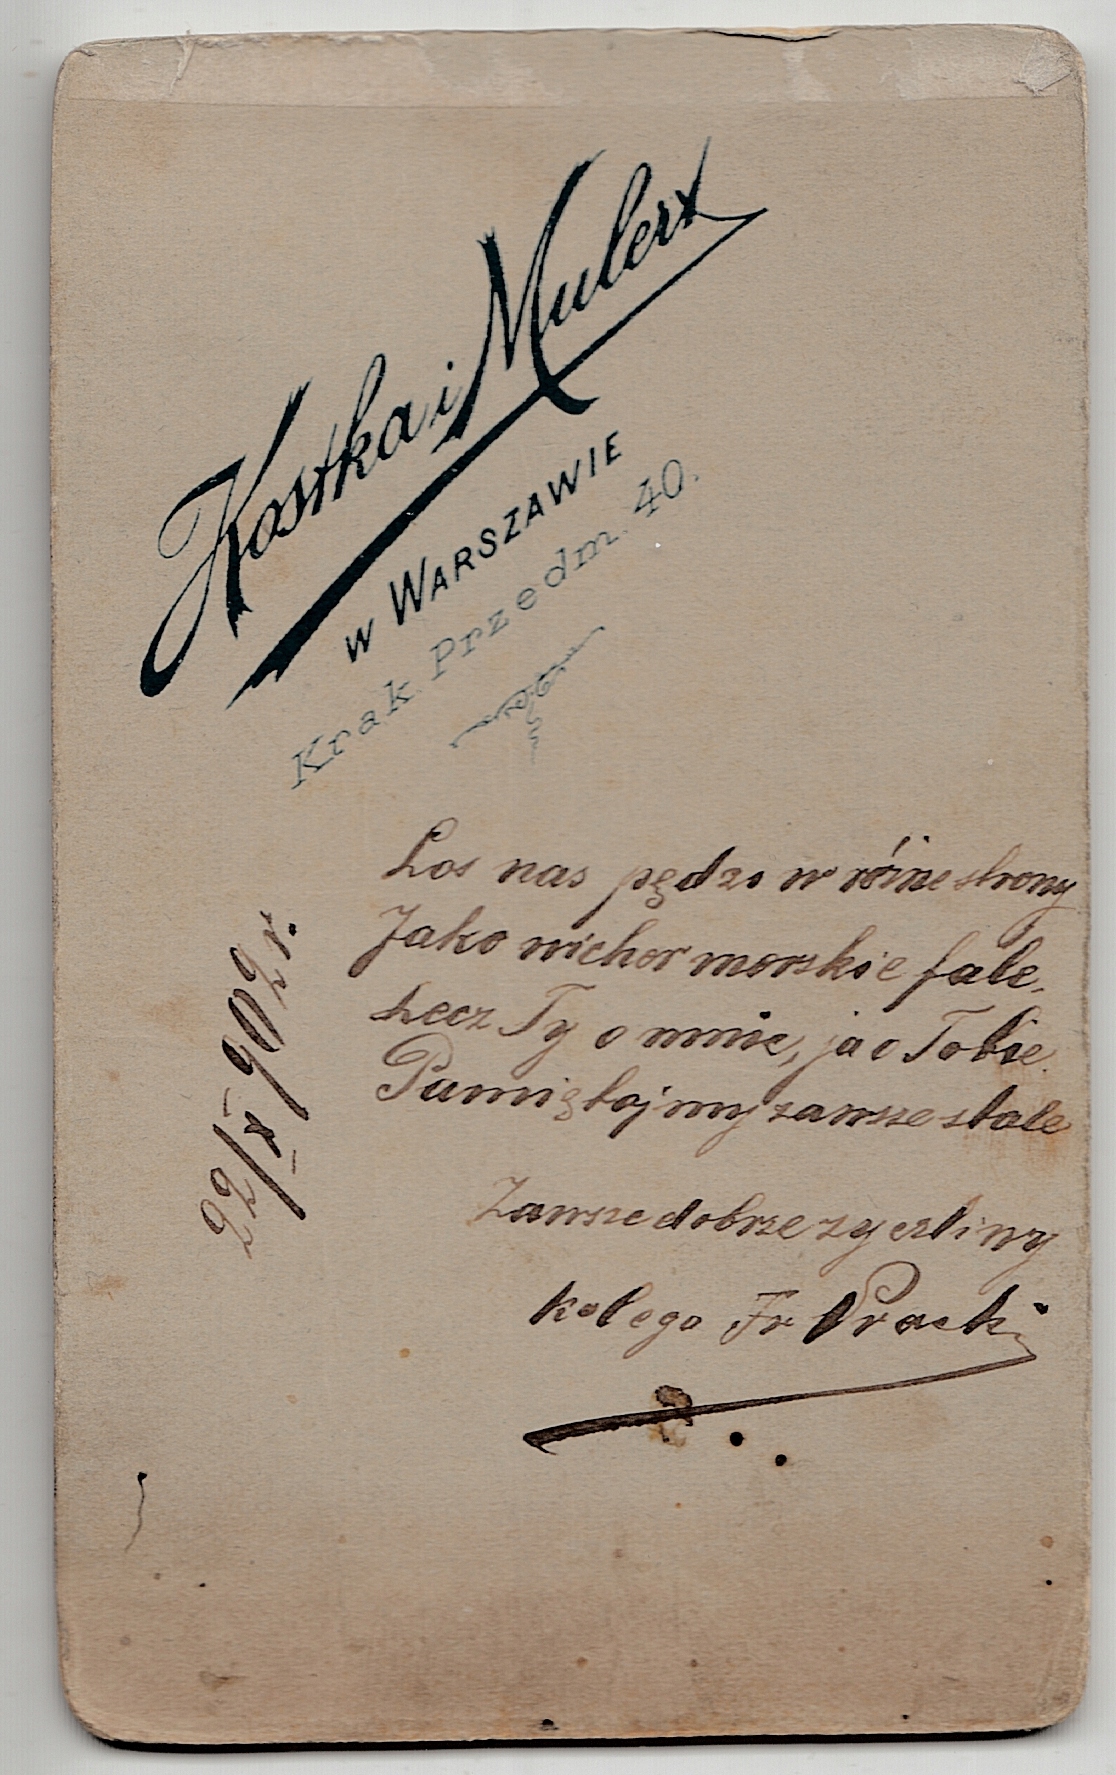 Kostka i Mulert
w WARSZAWIE
Krak. Przedm. 40.
Los nas pędzi w różne strony
Jako wicher morskie fale.
Lecz Ty o mnie, ja o Tobie.
Pamiętajmy zawsze stale
Zawsze dobrze życzliwy
kolega Fr Pracki
22/X 902 r.